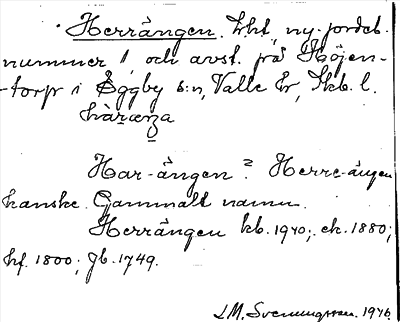 Herrängen. Lht, ny jordeb.
nummer 1, och avst. på Höjen-
-torp i Eggby s:n, Valle hr, Skb. l.
Har-ängen? Herre-ängen
kanske. Gammalt namn.
Herrängen kb. 1940; ek. 1880;
hf. 1800; jb. 1749.
J.M. Svenungsson. 1946